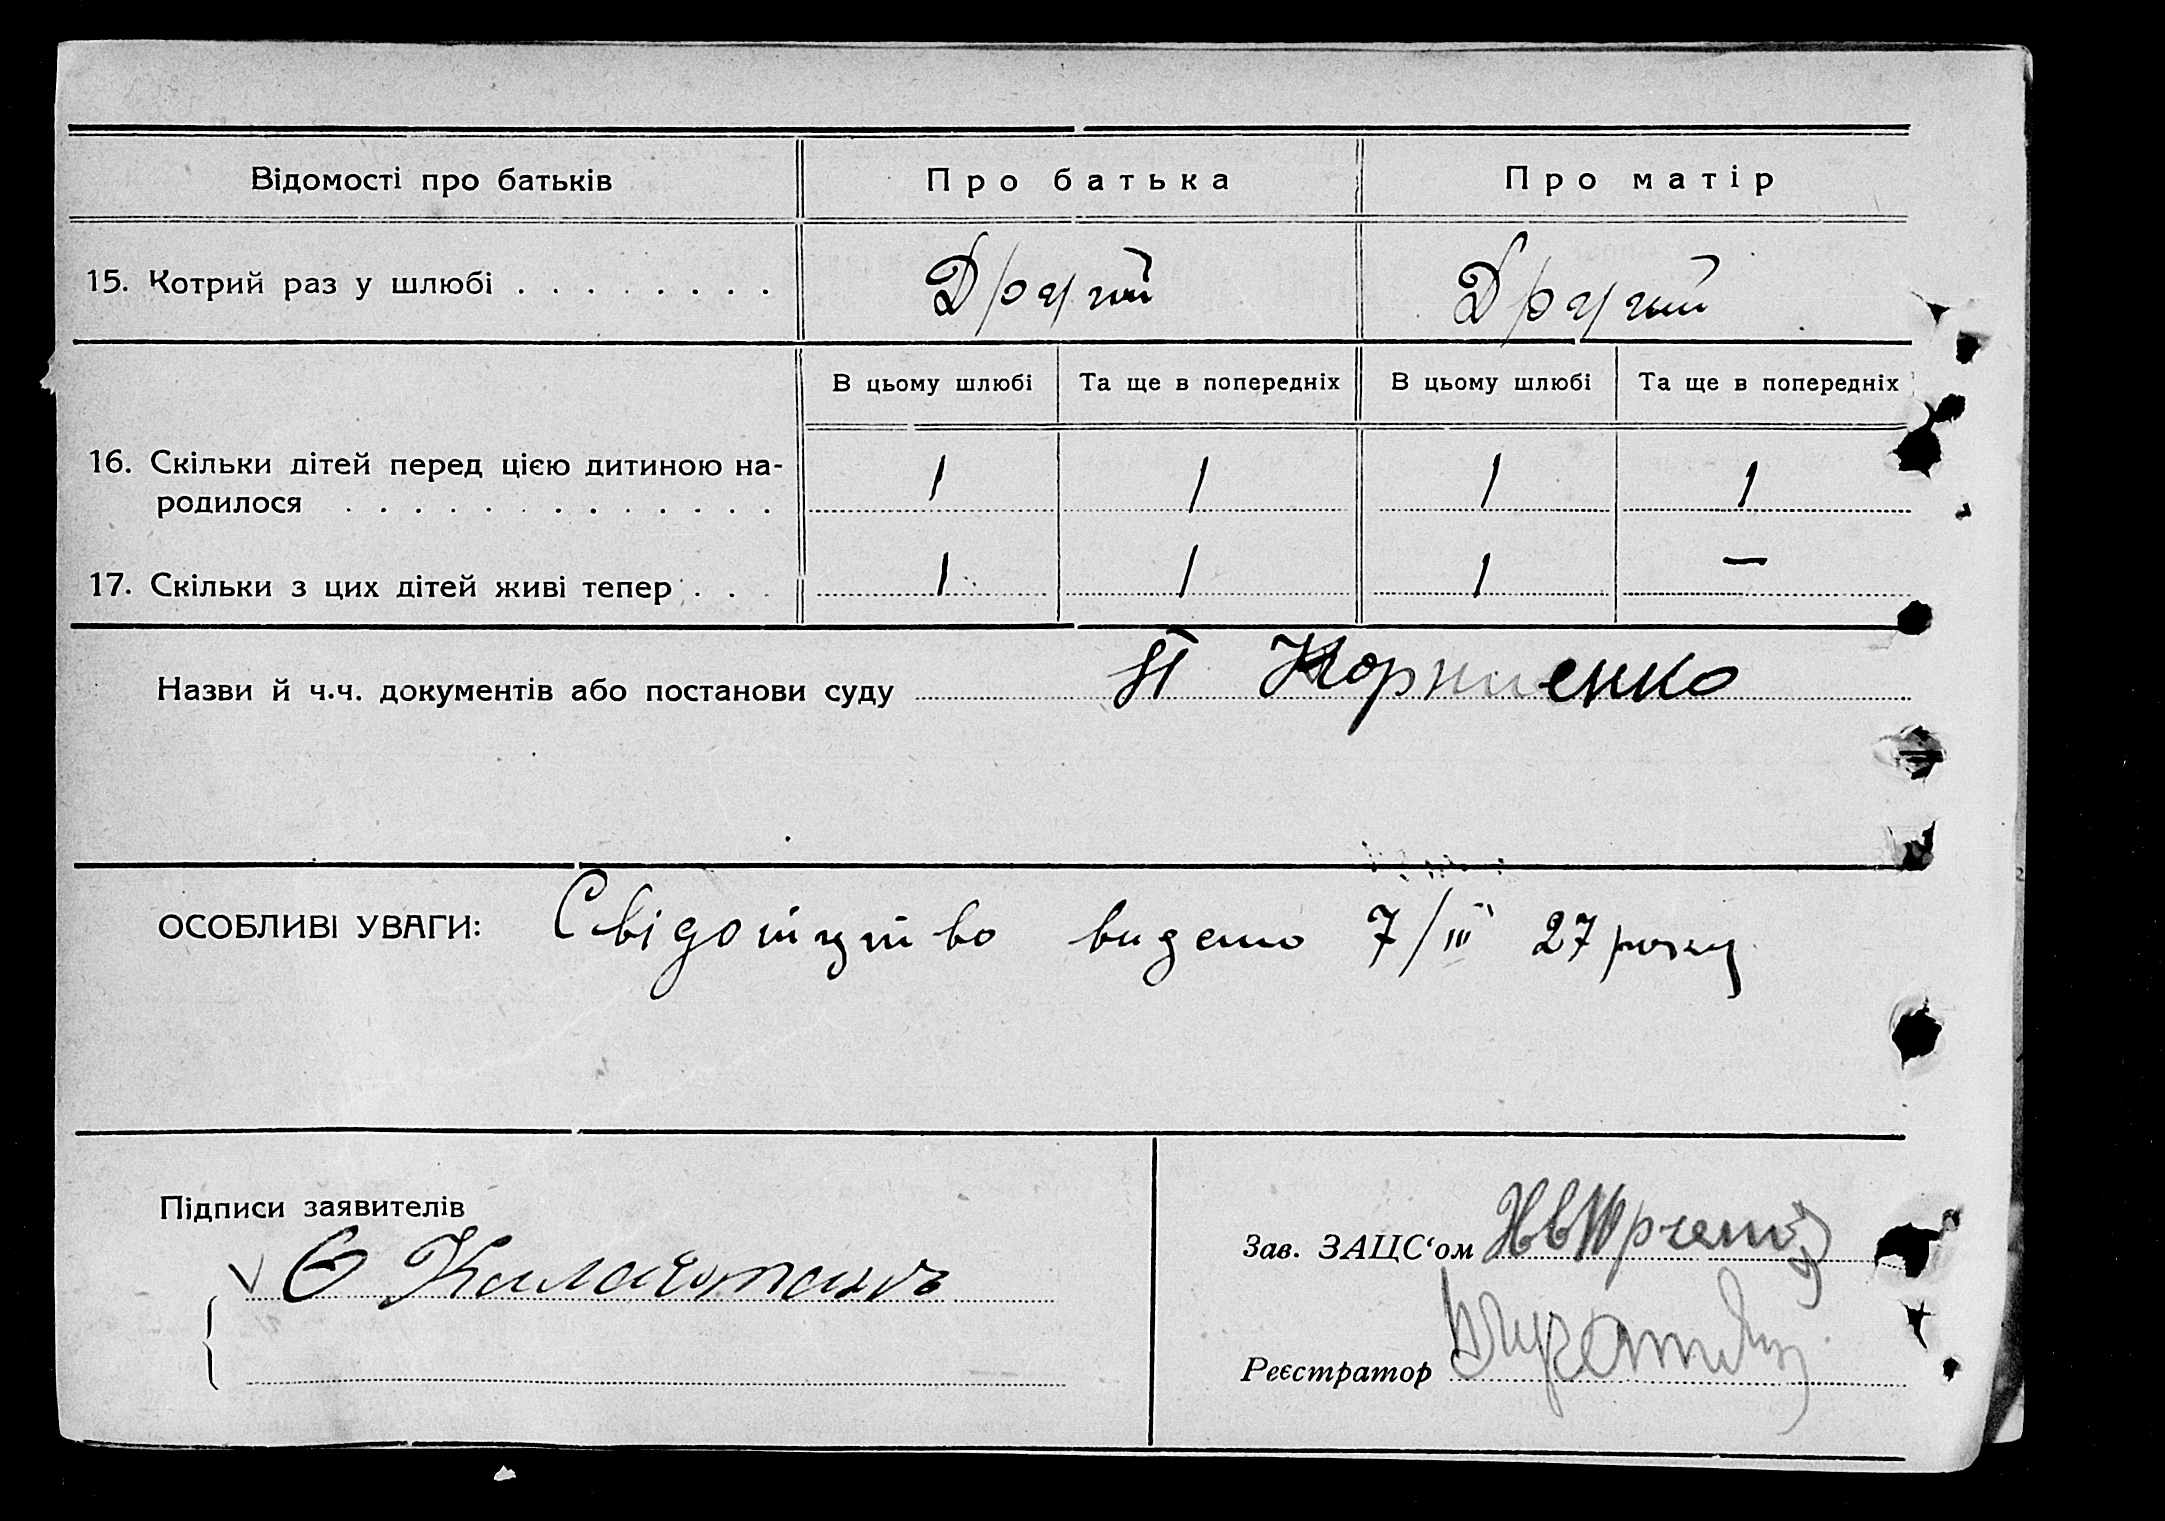 Відомості про батьків Про батька Про матір
15. Котрий раз у шлюбі . . . . . . . . Другий Другий
В цьому шлюбі Та ще в попередніх В цьому шлюбі Та ще в попередніх
16. Скільки дітей перед цією дитиною на-
родилося . . . . . . . . . . . . . 1 1 1 1
17. Скільки з цих дітей живі тепер . . . 1 1 1 —
Назви й ч.ч. документів або постанови суду
ОСОБЛИВІ УВАГИ: Свідоцтво видано 7/III 27 року
Підписи заявителів
Зав. ЗАЦС‘ом
Реєстратор